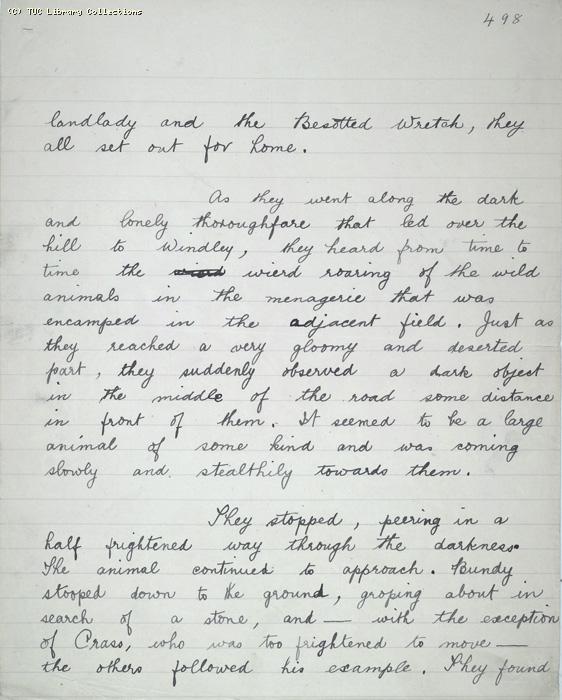 (C) TUC Library Collections
498
landlady and the Besotted Wretch, they
all set out for home.
As they went along the dark
and lonely thoroughfare that led over the
hill to Windley, they heard from time to
time the wierd roaring of the wild
animals in the menagerie that was
encamped in the adjacent field. Just as
they reached a very gloomy and deserted
part, they suddenly observed a dark object
in the middle of the road some distance
in front of them. It seemed to be a large
animal of some kind and was coming
slowly and stealthily towards them.
They stopped, peering in a
half frightened way through the darkness.
The animal continued to approach. Bundy
stooped down to the ground, groping about in
search of a stone, and — with the exception
of Crass, who was too frightened to move —
the others followed his example. They found